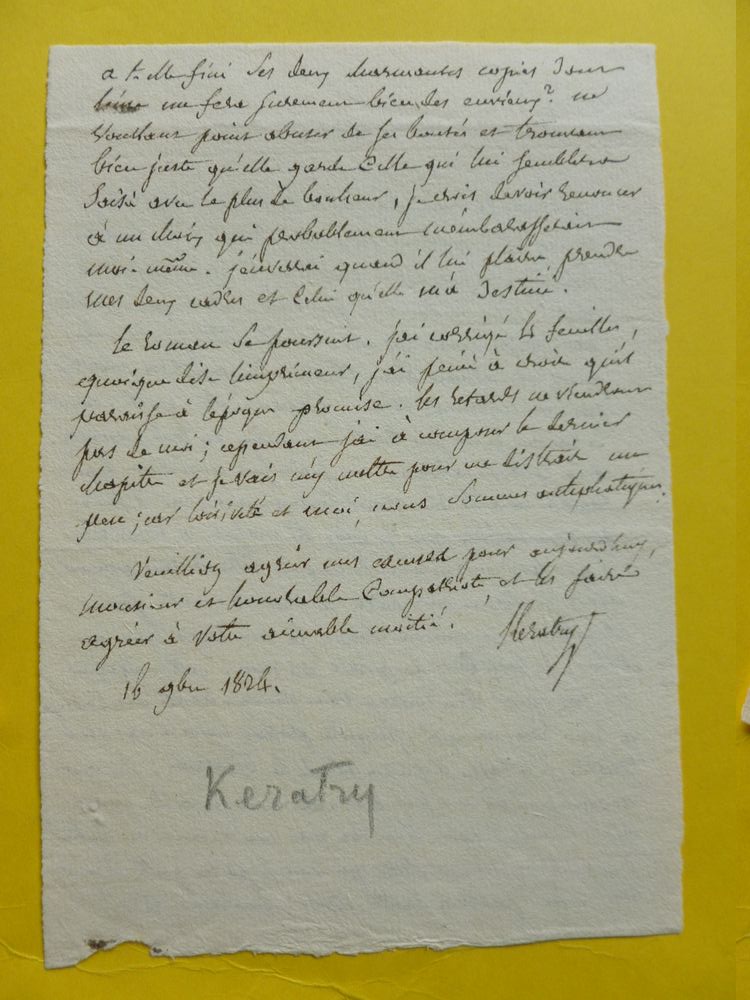 a t-elle fini ses deux charmantes copies dont
une fera surement bien des envieux? ne
voulant point abuser de ses bontés et trouvant
bien juste qu'elle garde celle qui lui semblera
saisie avec le plus de bonheur, je crois devoir renoncer
à un choix qui probablement m'embarasserait
moi-même. j'enverrai quand il lui plaira prendre
mes deux cadres et celui qu'elle m'a destiné.
le roman se poursuit. j'ai corrigé 13 feuilles,
quoique dise l'imprimeur, j'ai peine à croire qu'il
paroisse à l'époque promise. les retards ne viendront
pas de moi; cependant j'ai à composer le dernier
chapitre et je vais m'y mettre pour me distraire un
peu; car l'oisiveté et moi, nous sommes antipathiques.
Veuillez agréer mes excuses pour aujourdhuy,
monsieur et honorable compatriote, et les faire
agréer à votre aimable moitié.
Keratry
16 9bre 1824.
Keratry